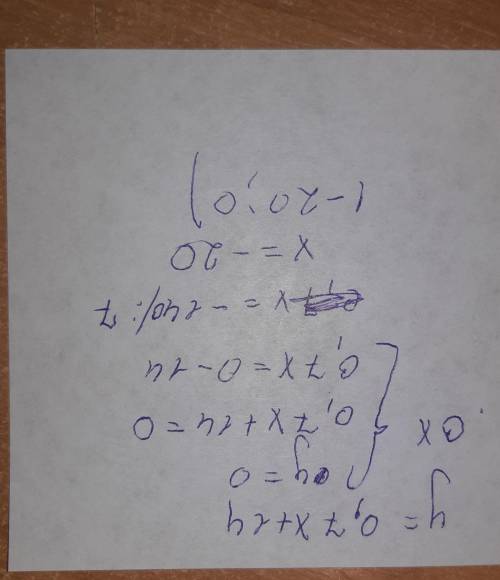 y = 0,7x+14
Ox
y = 0
0,7x+14 = 0
0,7x = 0-14
x = -140/:7
x = -20
(-20;0)